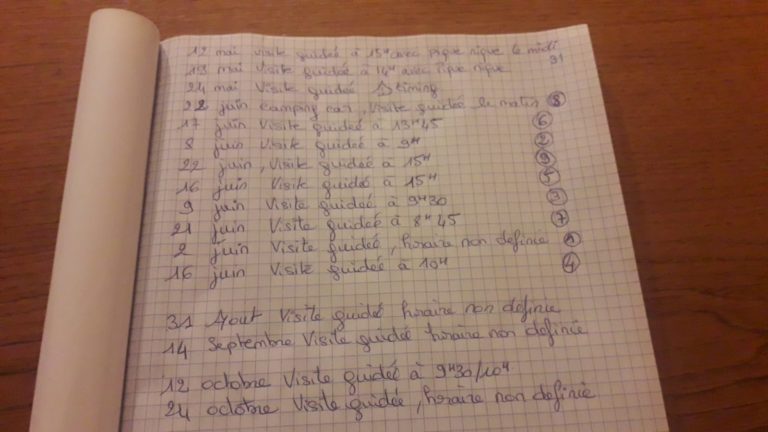 12 mai visite guideé à 15H avec pique nique le midi
13 mai Visite guideé à 14H avec pique nique 31
24 mai Visite guideé timing
22 juin camping car, Visite guideé le matin 8
17 juin Visite guideé à 13H45 6
8 juin Visite guideé à 9H 2
22 juin, Visite guideé à 15H 9
16 juin Visite guideé à 15H 5
9 juin Visite guideé à 9H30 3
21 juin Visite guideé à 8H45 7
2 juin Visite guideé, horaire non definie 1
16 juin Visite guideé à 10H 4
31 Aout Visite guideé horaire non definie
14 Septembre Visite guideé horaire non definie
12 octobre Visite guideé à 9H30/10H
24 octobre Visite guideé, horaire non definie